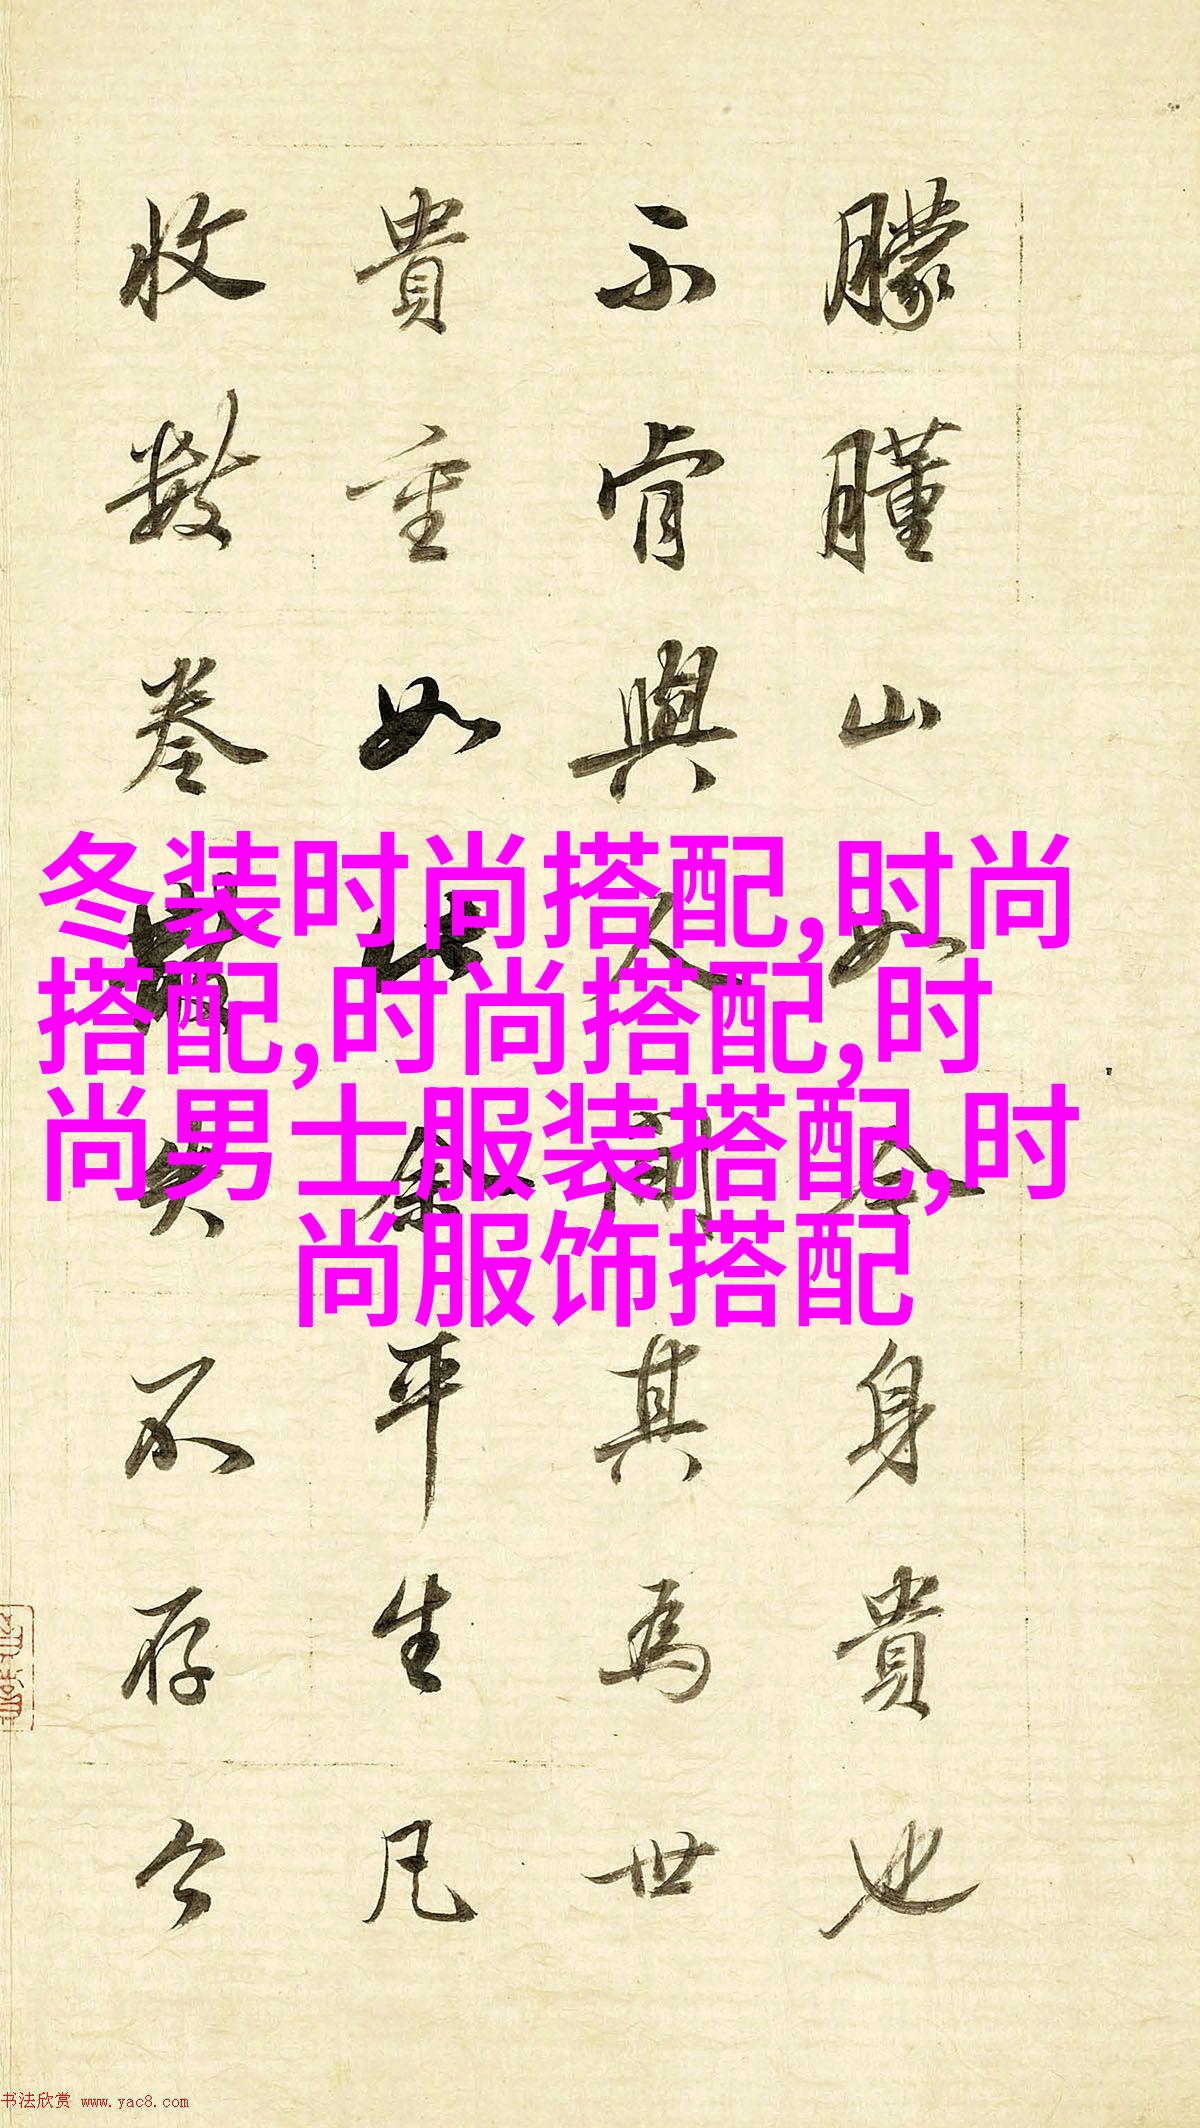 冬装时尚搭配,时尚
搭配,时尚搭配,时
尚男士服装搭配,时
尚服饰搭配
朦山如身貴也
不肯與人間其為世
貴重如此余平生凡
收數卷失不存今
书法欣赏 www.yac8.com